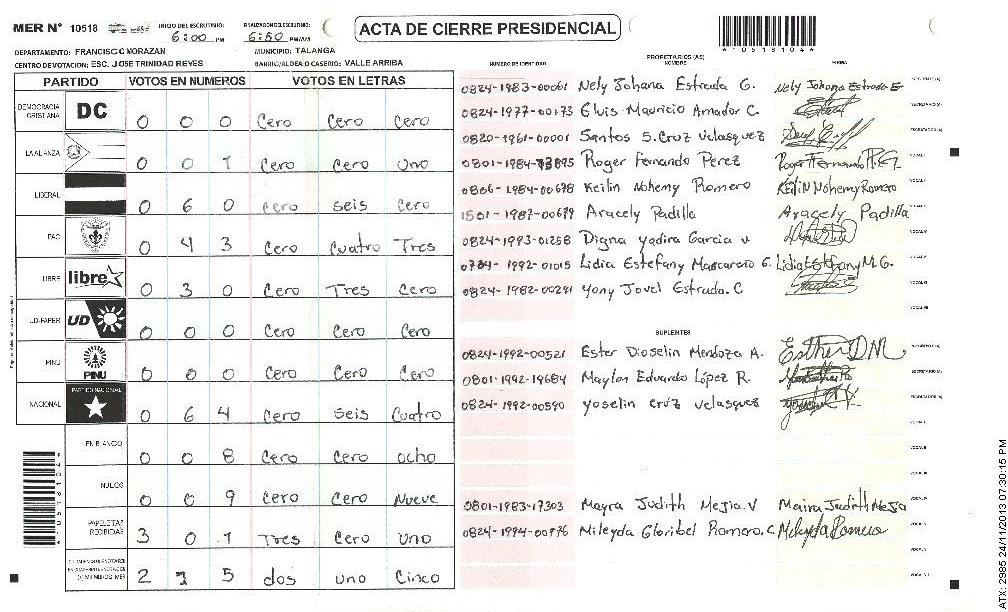 MER N° 10518
INICIO DEL ESCRUTINIO: 6:00 PM
FINALIZACION DE ESCRUTINIO: 6:50 PM/AM
ACTA DE CIERRE PRESIDENCIAL
*0518104*
DEPARTAMENTO: FRANCISCO MORAZAN
MUNICIPIO: TALANGA
CENTRO DE VOTACION: ESC. JOSE TRINIDAD REYES
BARRIO/ALDEA O CASERIO: VALLE ARRIBA
PARTIDO VOTOS EN NUMEROS VOTOS EN LETRAS
DEMOCRACIA CRISTIANA DC 0 0 0 Cero Cero Cero
LA ALIANZA 0 0 1 Cero Cero Uno
LIBERAL 0 6 0 Cero seis Cero
PAC 0 4 3 Cero Cuatro Tres
LIBRE libre 0 3 0 Cero Tres Cero
UD-FAPER UD 0 0 0 Cero Cero Cero
PINU PINU 0 0 0 Cero Cero Cero
NACIONAL PARTIDO NACIONAL 0 6 4 Cero seis Cuatro
EN BLANCO 0 0 8 Cero Cero ocho
NULOS 0 0 9 Cero Cero Nueve
PAPELETAS RECIBIDAS 3 0 1 Tres Cero uno
2 1 5 dos uno Cinco
NUMERO DE IDENTIDAD PROPIETARIOS (AS) NOMBRE FIRMA
0824-1983-00061 Nely Johana Estrada G. Nely Johana Estrada G
0824-1977-00173 Eluis Mauricio Amador C.
0820-1961-00001 Santos S. Cruz Velasquez
0801-1984- Roger Fernando Perez
0806-1984-00678 Keilin Nohemy Romero Keilin Nohemy Romero
1501-1987-00679 Aracely Padilla Aracely Padilla
0824-1993-01258 Digna yadira Garcia v
1992-01015 Lidia Estefany Mascareño G. Lidia Estefany M.G.
0824-1982-00291 yony Jovel Estrada.C
SUPLENTES
0824-1992-00521 Ester Dioselin Mendoza A. Esther DM
0801-1992-19684 Maylon Eduardo López R.
0824-1992-00590 yoselin cruz velasquez
0801-1983-17303 Mayra Judith Mejia.V Maira Judith Mejia
0824-1994-00976 Mileyda Gloribel Romero.C Mileyda Romero
ATX: 2985 24/11/2013 07:30:15 PM